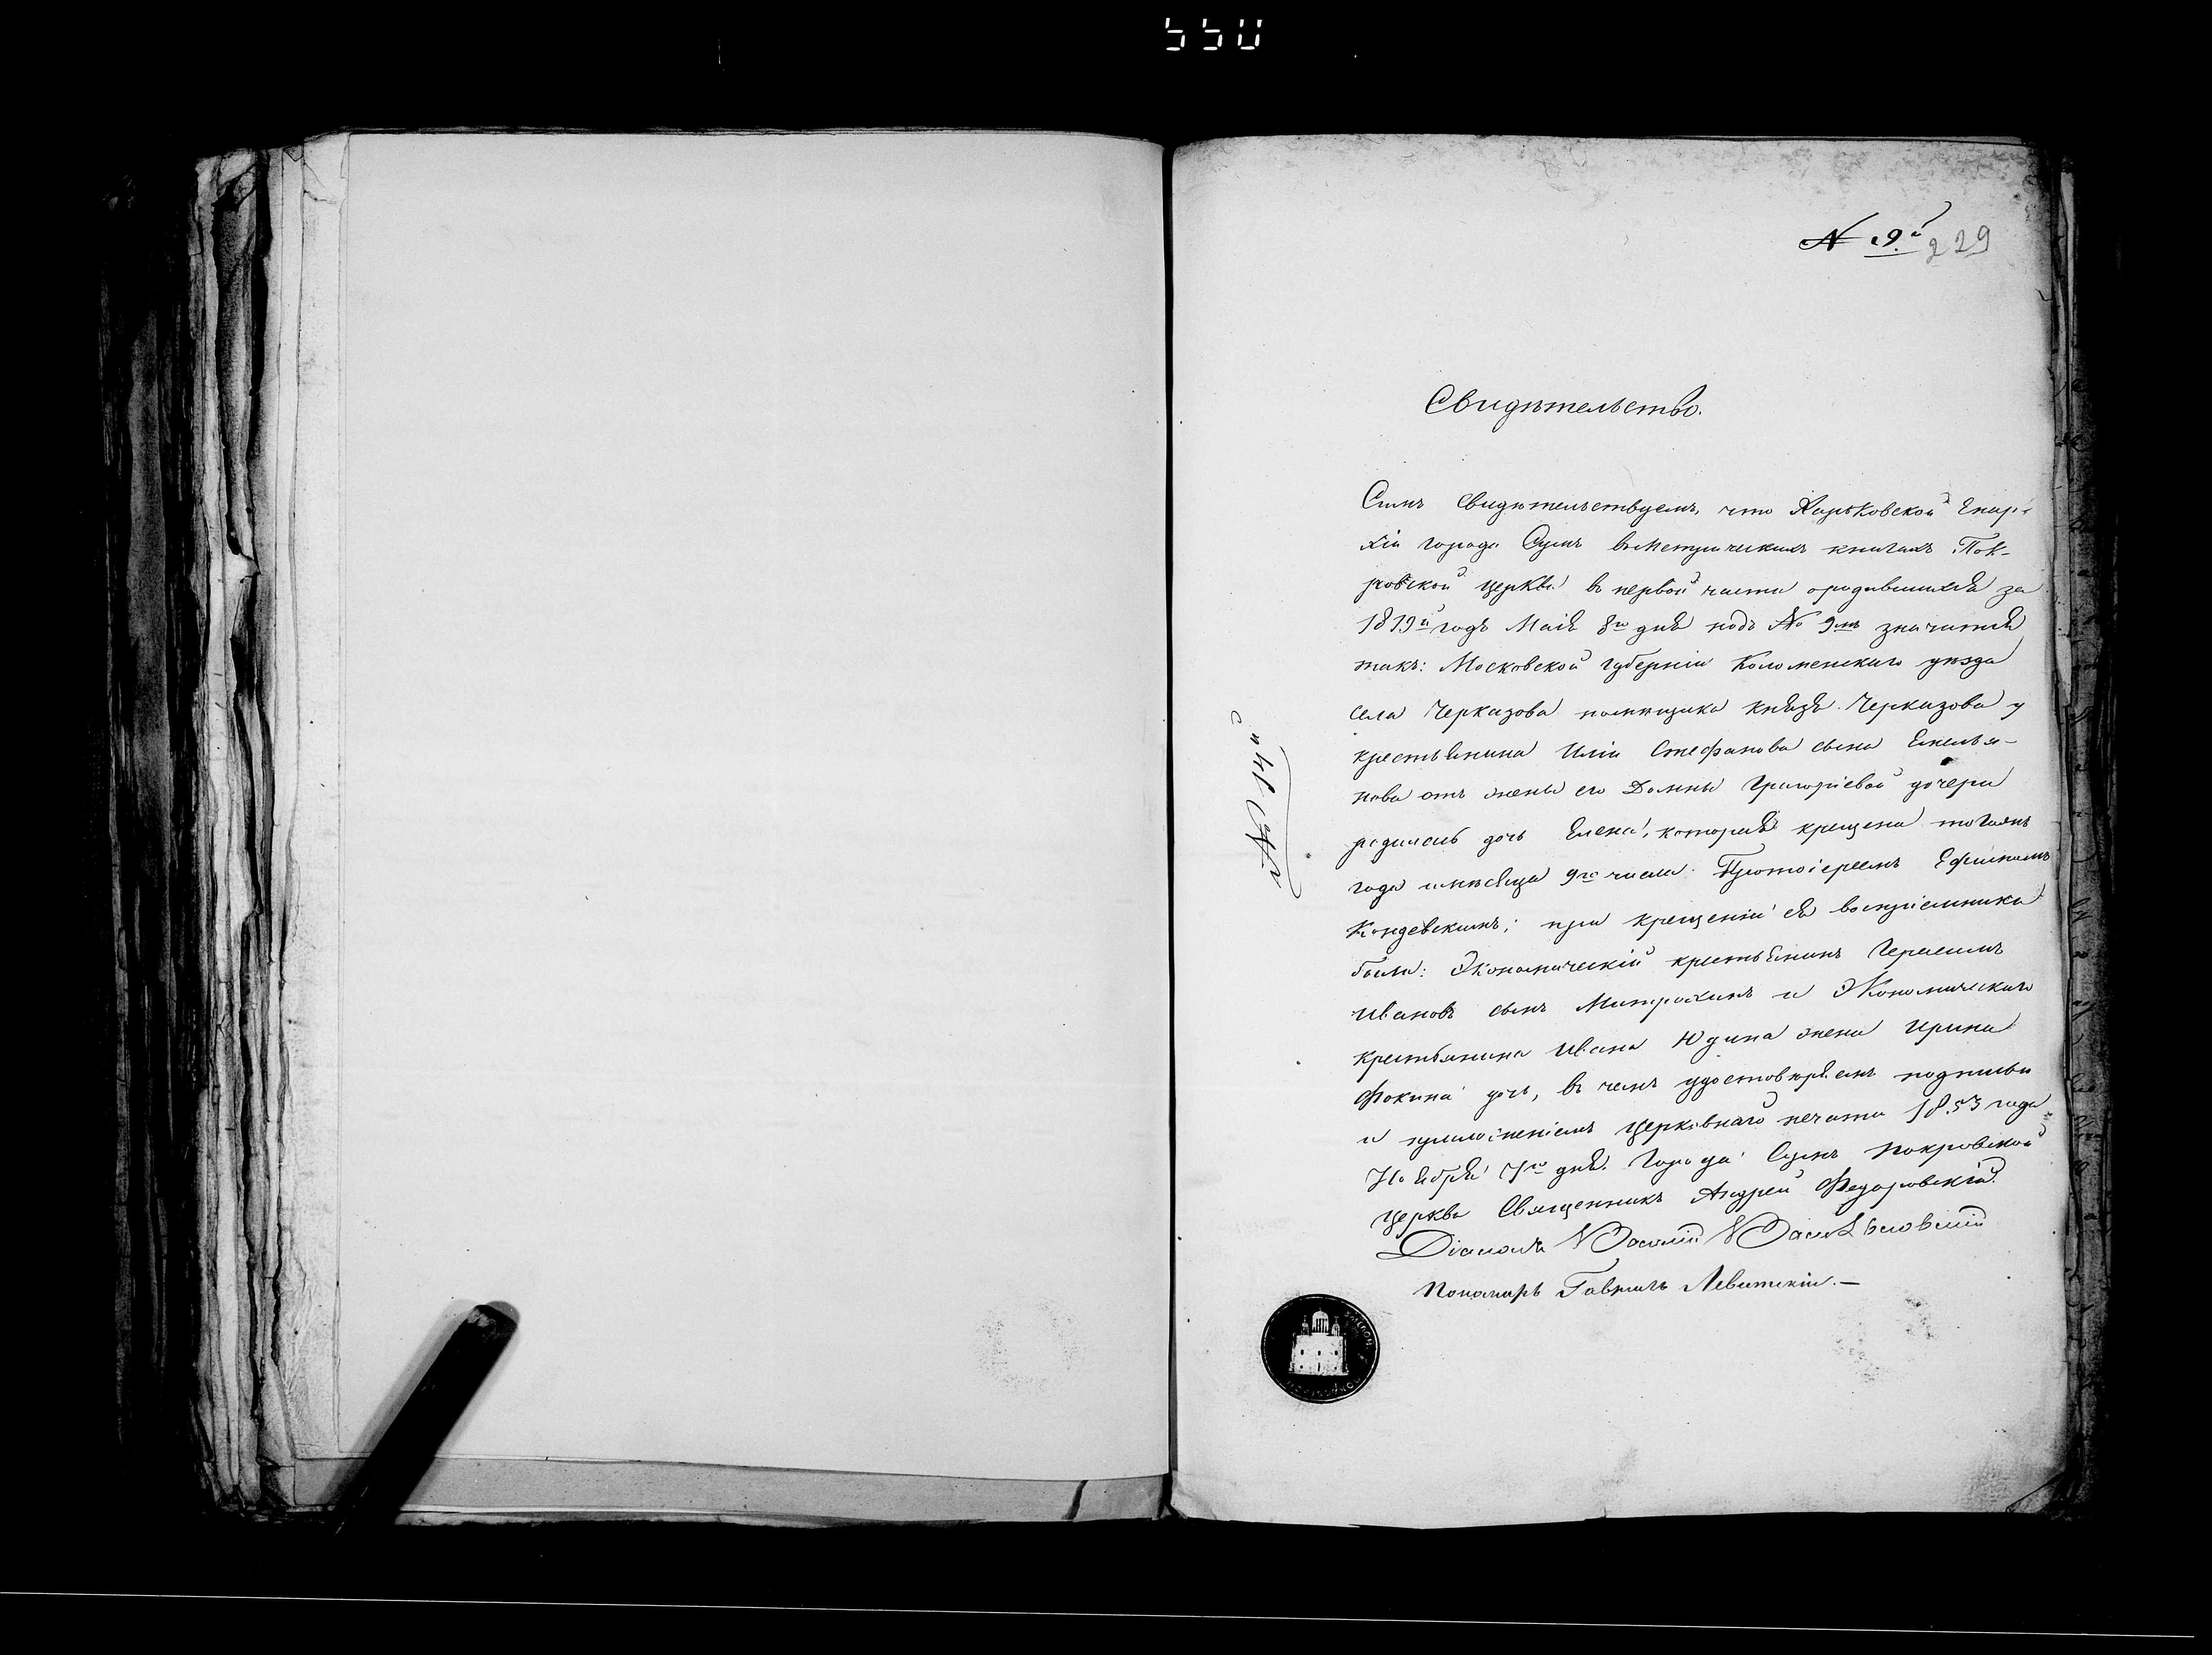 550
№ 9й 229
Свидѣтельство.
Симъ Свидѣтельствуемъ, что Харьковской Епар-
хіи города Сумъ вметрическихъ книгахъ Пок-
ровской церкви в первой части ородившихся за
1819й годъ Маія 8го дня подъ № 9мъ значится
такъ: Московской губерніи Коломенскаго уѣзда
села Черкизова помѣщика князя Черкизова у
крестьянина Иліи Стефанова сына Емелья-
нова отъ жены его Домны Григоріевой дочери
родилась дочь Елена, которая крещена тогожъ
года имѣсяца 9го числа Протоіереемъ Ефимомъ
при крещеніи ея воспріемники
были: Экономическій крестьянинъ Герасимъ
Ивановъ сынъ Митрохинъ и Экономическаго
крестьянина Ивана Юдина жена Ирина
Фокина дочь, въ чемъ удостовѣряемъ подписью
и приложеніемъ церковнаго печати 1853 года
Ноября 7го дня. Города Сумъ Покровской
церкви Священникъ Андрей Федоровскій.
Діаконъ
Пономарь Гавріилъ Левитскій.—